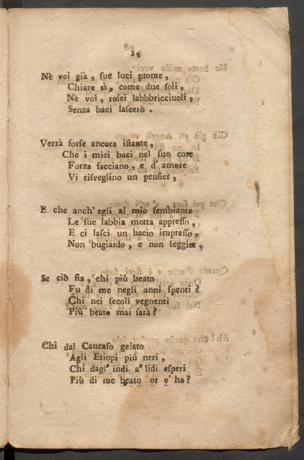 14
Nè voi già, sue luci pronte,
Chiare sì, come due soli,
Nè voi, rosei labbbricciuoli,
Senza baci lascerò.
Verrà forse ancora istante,
Che i miei baci nel suo core
Forza facciano, e d' amore
Vi risveglino un pensier,
E che anch' egli al mio sembiante
Le sue labbia metta appresso,
E ci lasci un bacio impresso,
Non bugiardo, e non leggier,
Se ciò fia, chi più beato
Fu di me negli anni spenti?
Chi nei secoli vegnenti
Più beato mai sarà?
Chi dal Caucaso gelato
Agli Etiopi più neri,
Chi dagl' indi a' lidi esperi
Più di me beato or v' ha?